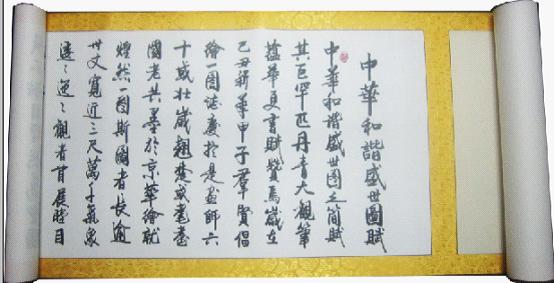 中華和諧盛世圖賦
中華和諧盛世圖之簡賦
其巨罕匹丹青大觀筆
蘊華夏書賦贊焉歲在
己丑新華甲子羣賢倡
繪一圖誌慶於是畫師六
十或壯歲翹楚或耄耋
國老共墨於京華繪就
煌然一圖斯圖者長逾
卅丈寬近三尺萬千氣象
觀者甘展眸目